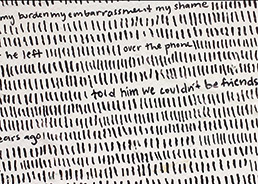 my burden my embarrassment my shame
he left over the phone
told him we couldn't be friends
ears ago